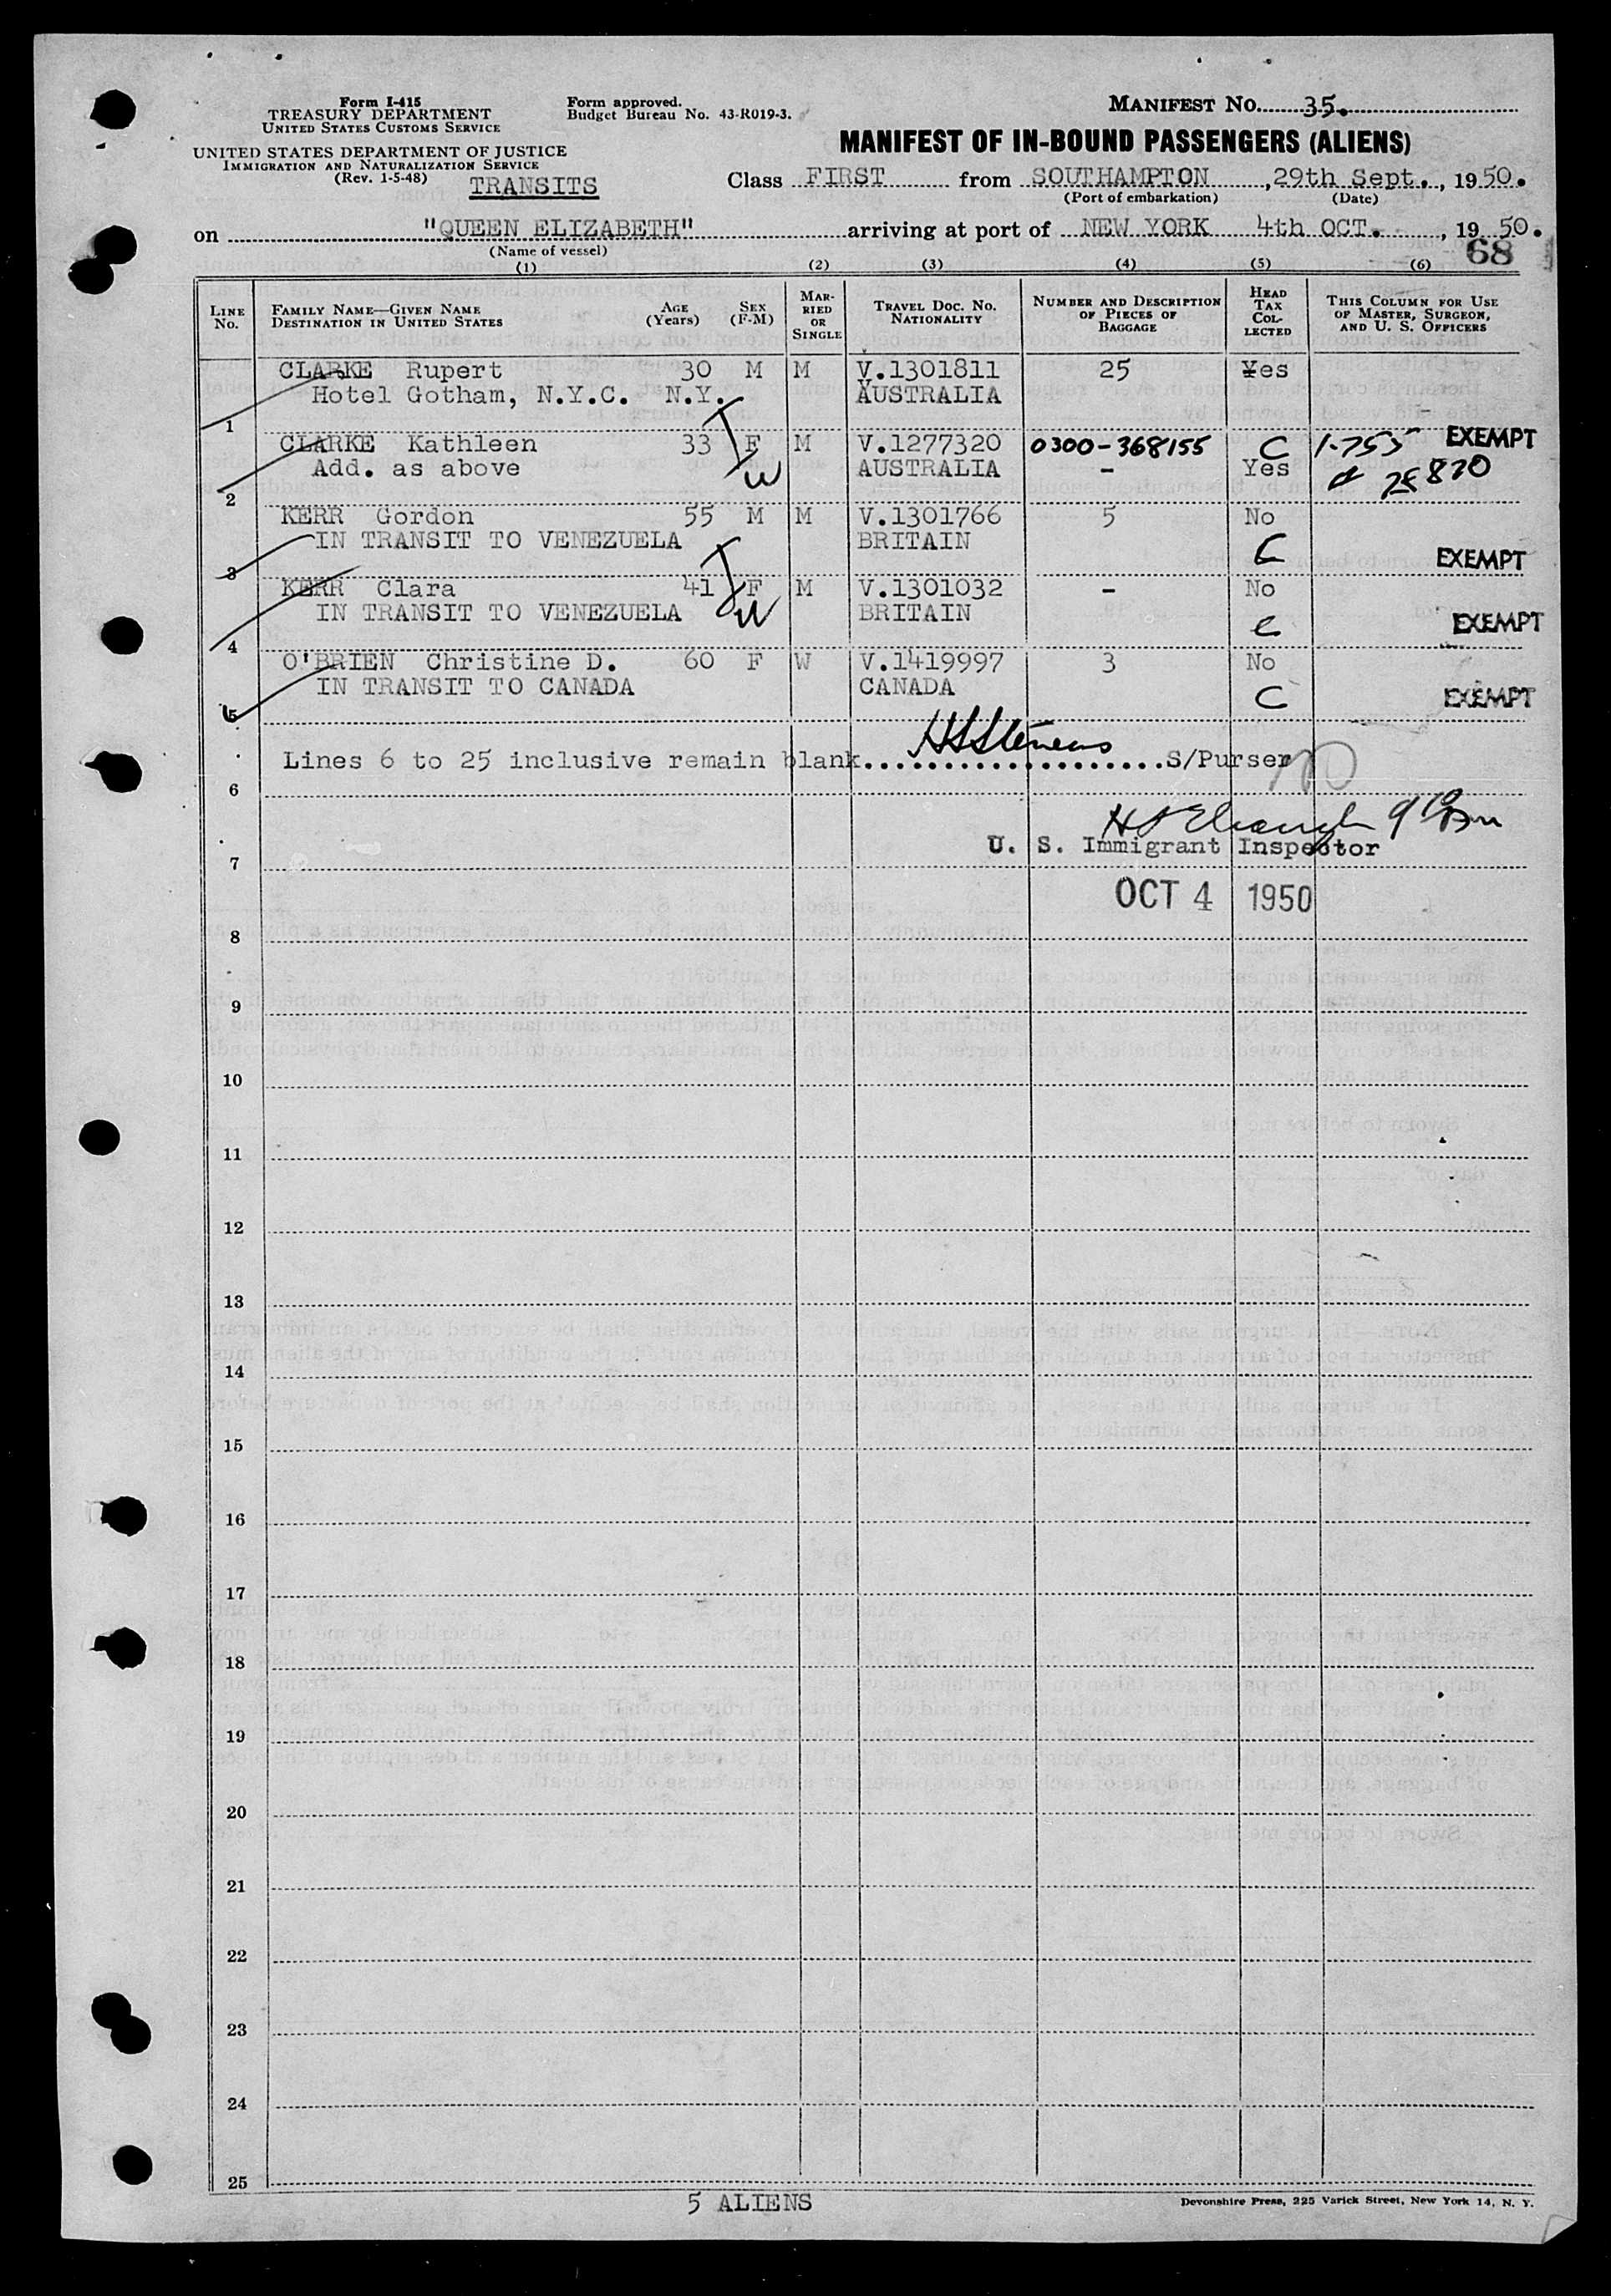 Form I-415
TREASURY DEPARTMENT
UNITED STATES CUSTOMS SERVICE
UNITED STATES DEPARTMENT OF JUSTICE
IMMIGRATION AND NATURALIZATION SERVICE
(Rev. 1-5-48)
TRANSITS
Form approved.
Budget Bureau No. 43-R019-3.
MANIFEST NO. 35.
MANIFEST OF IN-BOUND PASSENGERS (ALIENS)
Class FIRST from SOUTHAMPTON, 29th Sept., 1950.
(Port of embarkation) (Date)
on "QUEEN ELIZABETH" arriving at port of NEW YORK 4th OCT., 1950.
(Name of vessel)
68
(1) (2) (3) (4) (5) (6)
LINE No. FAMILY NAME—GIVEN NAME DESTINATION IN UNITED STATES AGE (Years) SEX (F-M) MARRIED OR SINGLE TRAVEL DOC. NO. NATIONALITY NUMBER AND DESCRIPTION OF PIECES OF BAGGAGE HEAD TAX COLLECTED THIS COLUMN FOR USE OF MASTER, SURGEON, AND U. S. OFFICERS
CLARKE Rupert 30 M M V.1301811 25 Yes
Hotel Gotham, N.Y.C. N.Y. AUSTRALIA
1
CLARKE Kathleen 33 F M V.1277320 0300-368155 C 1-755 EXEMPT
Add. as above W AUSTRALIA - Yes
2
KERR Gordon 55 M M V.1301766 5 No
IN TRANSIT TO VENEZUELA BRITAIN C EXEMPT
3
KERR Clara 41 F M V.1301032 - No
IN TRANSIT TO VENEZUELA W BRITAIN C EXEMPT
4
O'BRIEN Christine D. 60 F W V.1419997 3 No
IN TRANSIT TO CANADA CANADA C EXEMPT
5
Lines 6 to 25 inclusive remain blank.....................S/Purser
6
U. S. Immigrant Inspector
7
OCT 4 1950
8
9
10
11
12
13
14
15
16
17
18
19
20
21
22
23
24
25
5 ALIENS
Devonshire Press, 225 Varick Street, New York 14, N. Y.